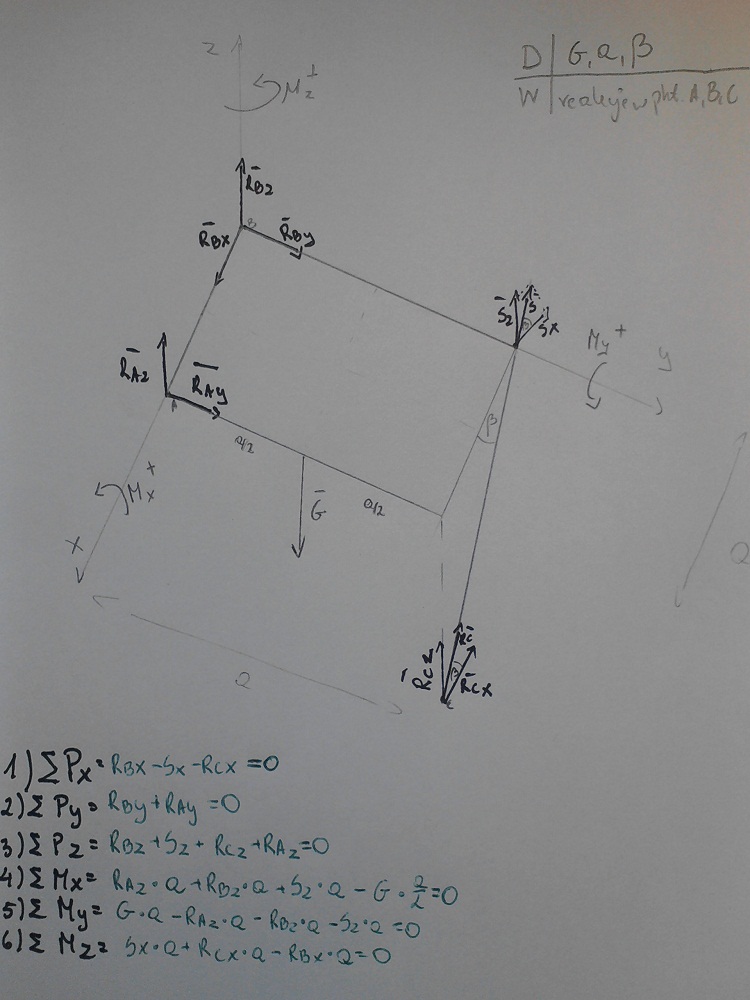 z
Mz+
D | G, a, β
W | reakcje w pkt. A, B, C
R̄Bz
B
R̄Bx
R̄By
S̄z S̄ S̄x
My+
y
R̄Az
R̄Ay
A
a/2
β
Mx+
Ḡ
a/2
x
a
a
R̄Cz R̄C β R̄Cx
C
1) ΣPx = RBx - Sx - RCx = 0
2) ΣPy = RBy + RAy = 0
3) ΣPz = RBz + Sz + RCz + RAz = 0
4) ΣMx = RAz · a + RBz · a + Sz · a - G · a/2 = 0
5) ΣMy = G · a - RAz · a - RBz · a - Sz · a = 0
6) ΣMz = Sx · a + RCx · a - RBx · a = 0